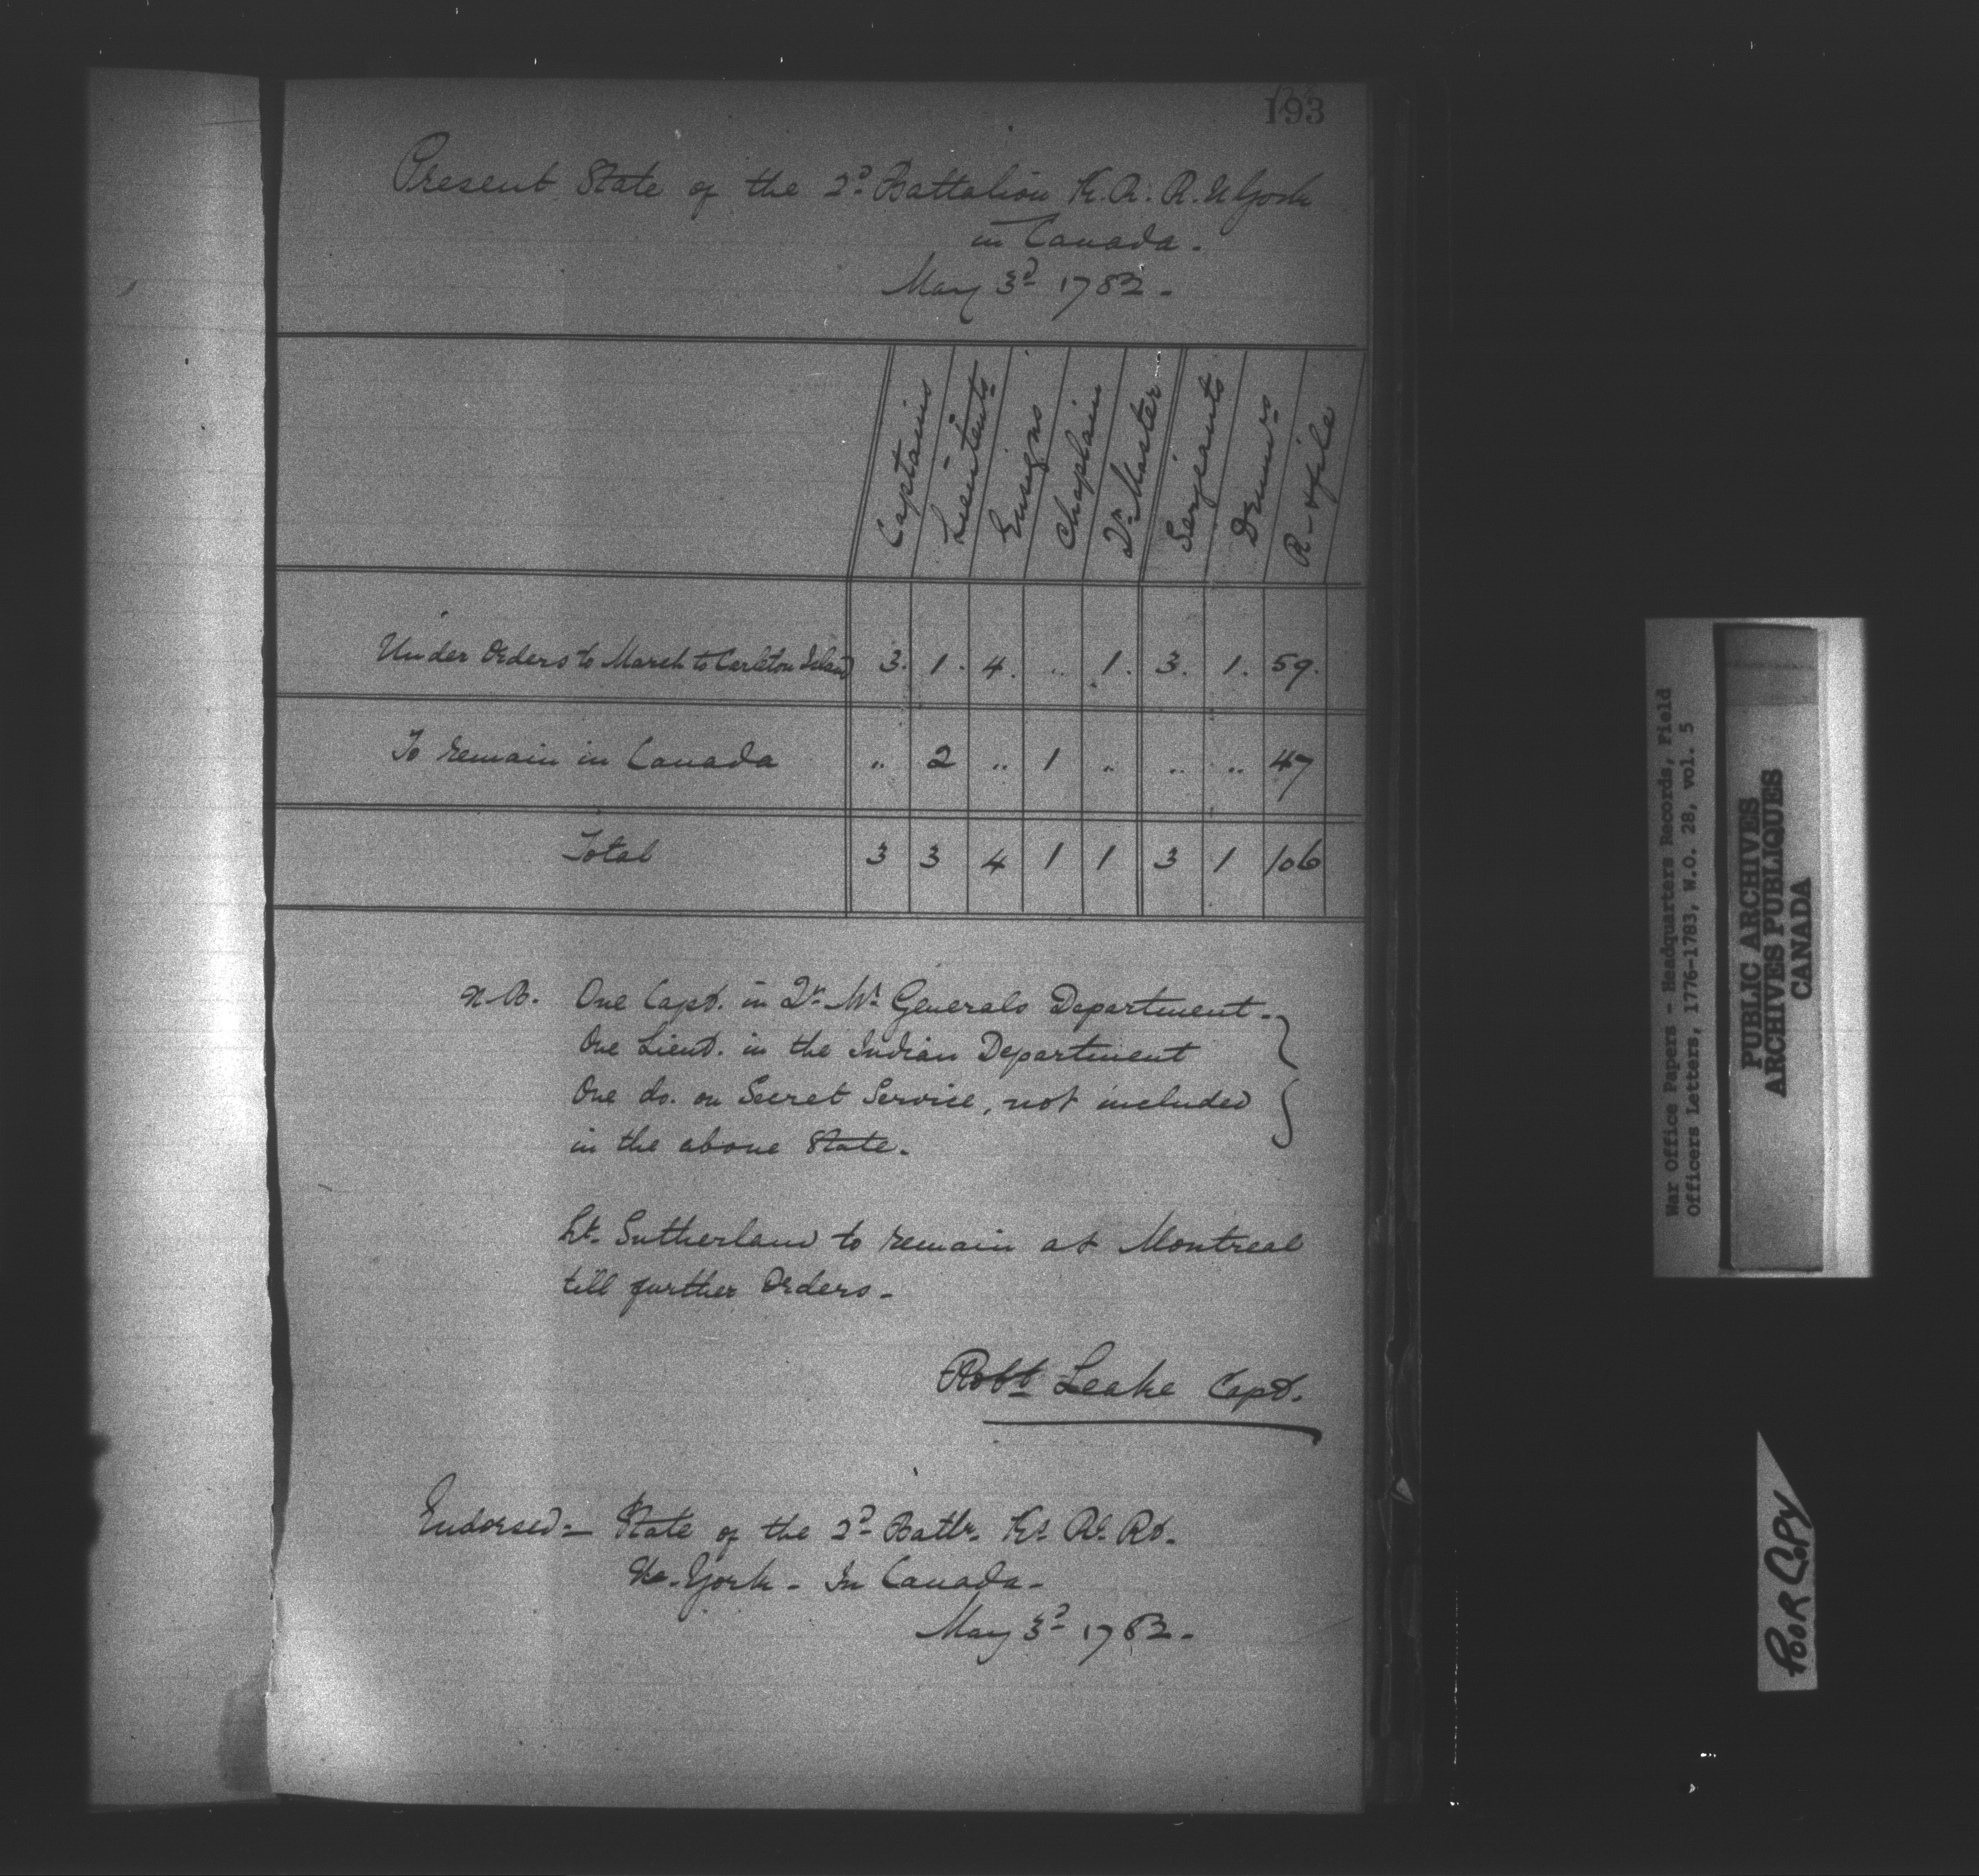 193
Present State of the 2d Battalion K. R. R. N York
in Canada.
May 3d 1782.
Captains Lieutents Ensigns Chaplain Qr Master Serjeants Drumrs R & file
Under Orders to March to Carleton Island 3. 1. 4. .. 1. 3. 1. 59.
To remain in Canada .. 2 .. 1 .. .. .. 47
Total 3 3 4 1 1 3 1 106
N.B. One Capt. in Qr Mr Generals Department.
One Lieut. in the Indian Department
One do. on Secret Service, not included
in the above State.
Lt. Sutherland to remain at Montreal
till further Orders.
Robt Leake Capt.
Endorsed - State of the 2d Battn. Ks Rl Rt.
Nw. York - In Canada -
May 3d 1782.
War Office Papers - Headquarters Records, Field
Officers Letters, 1776-1783, W.O. 28, vol. 5
PUBLIC ARCHIVES
ARCHIVES PUBLIQUES
CANADA
POOR COPY